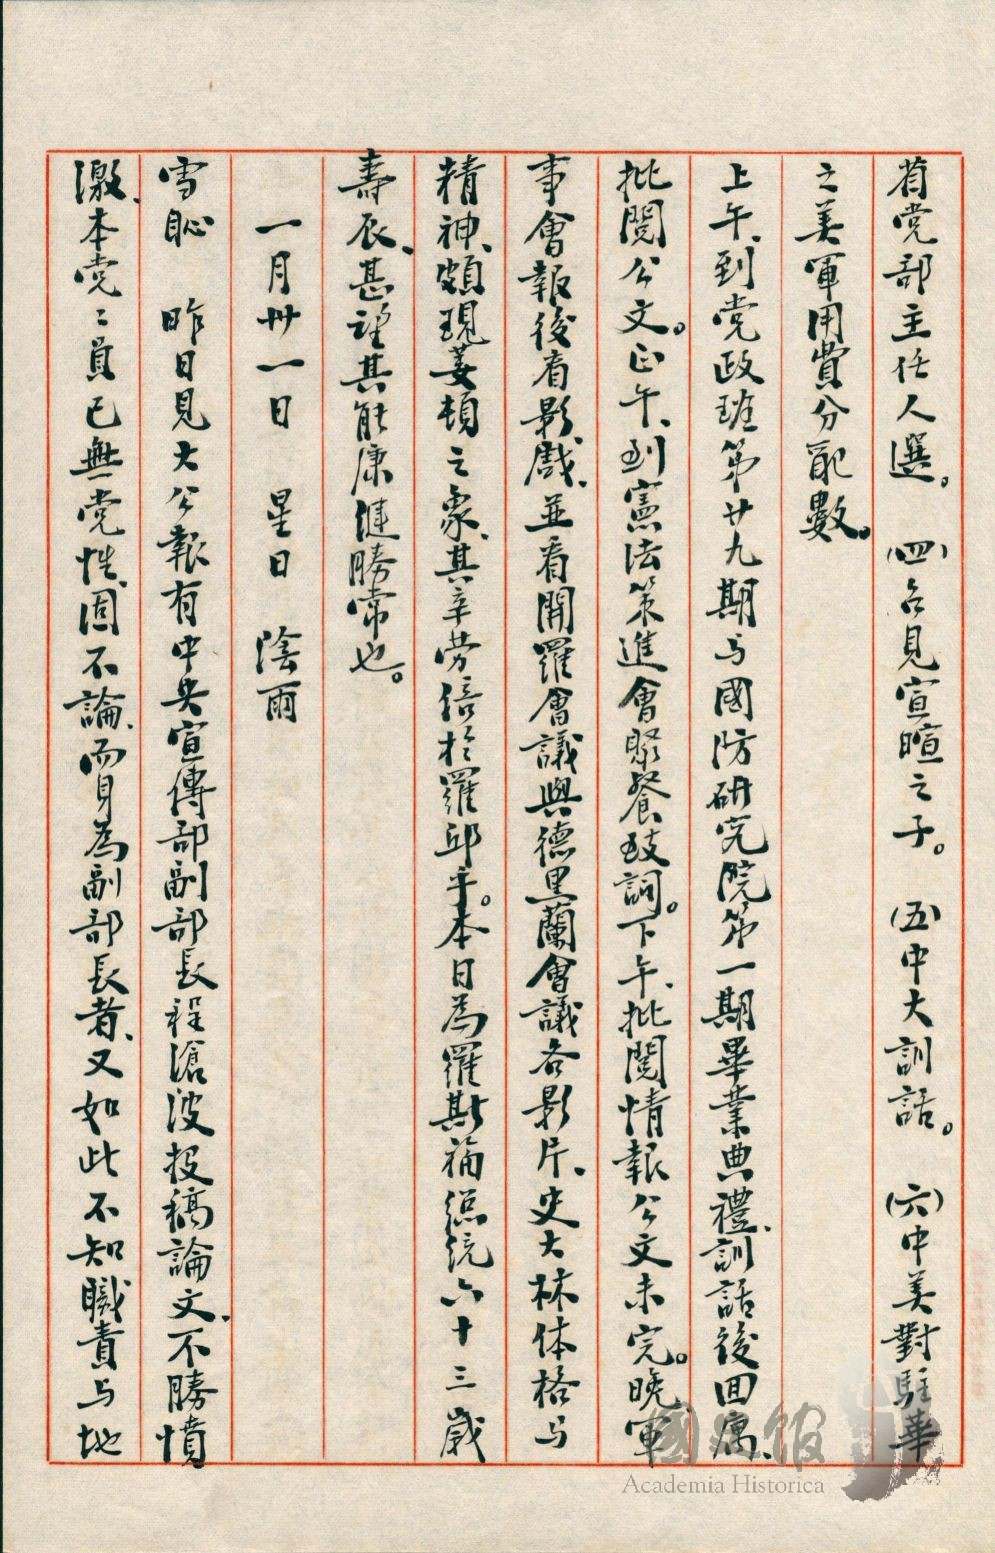 省党部主任人選。㈣召見宣暄之子。㈤中大訓話。㈥中美對駐華
之美軍用費分配數。
上午、到党政班第廿九期与國防研究院第一期畢業典禮、訓話後回寓、
批閱公文。正午、到憲法策進會聚餐致詞。下午、批閱情報公文未完。晚軍
事會報後看影戲、並看開羅會議與德黑蘭會議各影片、史大林体格与
精神、頗現萎頓之象、其辛勞倍於羅邱乎。本日為羅斯福總統六十三歲
壽辰、甚望其能康健勝常也。
一月卅一日 星日 陰雨
雪恥 昨日見大公報有中央宣傳部副部長程滄波投稿論文、不勝憤
激、本党〻員已無党性、固不論、而身為副部長者、又如此不知職責与地
國史館
Academia Historica